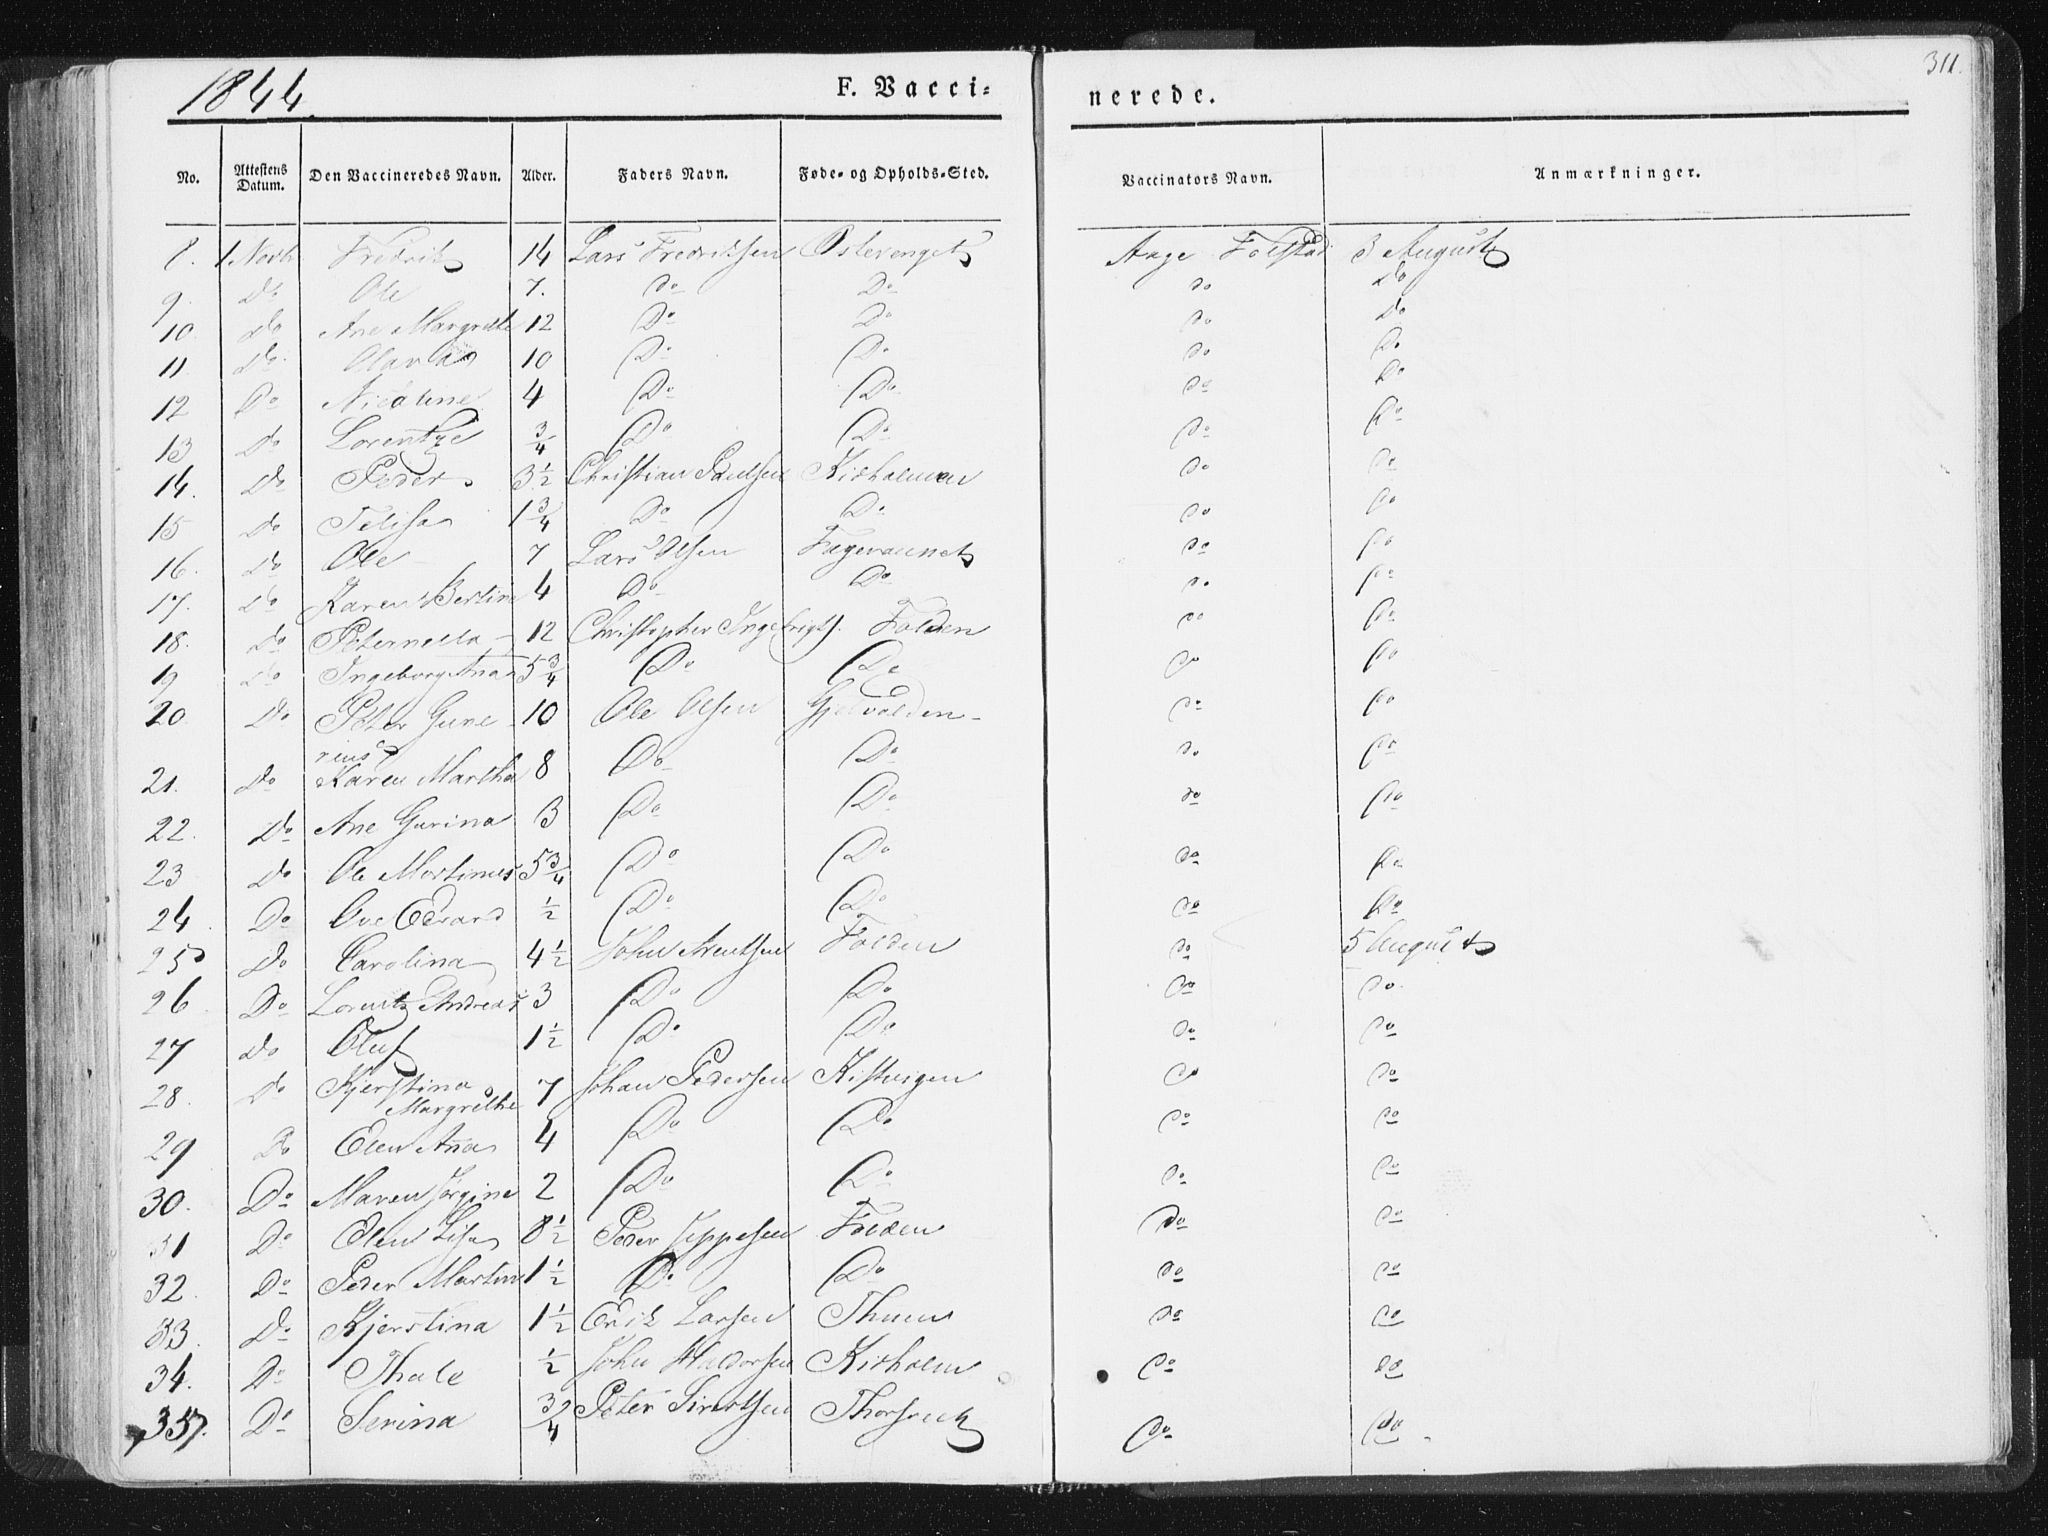 1844. F. Vacci= nerede. 311.
No. Attestens Datum. Den Vaccineredes Navn. Alder. Faders Navn. Føde- og Opholds-Sted. Vaccinators Navn. Anmærkninger.
8. 1 Novbr Fredrik 14 Lars Fredriksen Østevenget Aage Folstad 3 August
9. Do Ole 7. Do Do Do Do
10 Do Ane Margrethe 12 Do Do Do Do
11 Do Olava 10 Do Do Do Do
12 Do Nicoline 4 Do Do Do Do
13 Do Lorentze 3/4 Do Do Do Do
14. Do Peder 3 1/2 Christian Paulsen Kirholmen Do Do
15 Do 1 3/4 Do Do Do Do
16. Do Ole 7 Lars Olsen Fagervannet Do Do
17. Do Karen Bertine 4 Do Do Do Do
18. Do Peternella 12 Christopher Ingebrigts. Folden Do Do
19 Do Ingeborg Anna 5 3/4 Do Do Do Do
20. Do Peter Gune- 10 Ole Olsen Gjelvolden Do Do
rius
21. Do Karen Martha 8 Do Do Do Do
22. Do Ane Gurina 3 Do Do Do Do
23 Do Ole Mortinus 5 3/4 Do Do Do Do
24. Do Ove Edvard 1/2 Do Do Do Do
25 Do Carolina 4 1/2 John Arentsen Folden Do 5 August
26 Do Lorentz Andreas 3 Do Do Do Do
27 Do Oluf 1 1/2 Do Do Do Do
28. Do Kjerstina 7 Johan Pedersen Kistvigen Do Do
Margrethe
29 Do Elen Anna 4 Do Do Do Do
30. Do Maren Jørgine 2 Do Do Do Do
31 Do Elen Lisa 8 1/2 Peder Jeppesen Folden Do Do
32. Do Peder Martin 1 1/2 Do Do Do Do
33. Do Kjerstina 1 1/2 Erik Larsen Thunes Do Do
34. Do Thale 1/2 John Haldorsen Kirholm Do Do
35. Do Serina 3/4 Peter Sivertsen Do Do